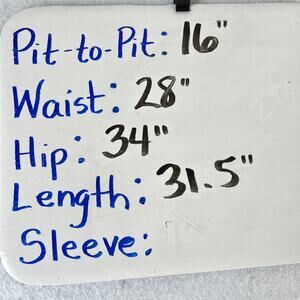 Pit-to-Pit: 16"
Waist: 28"
Hip: 34"
Length: 31.5"
Sleeve: